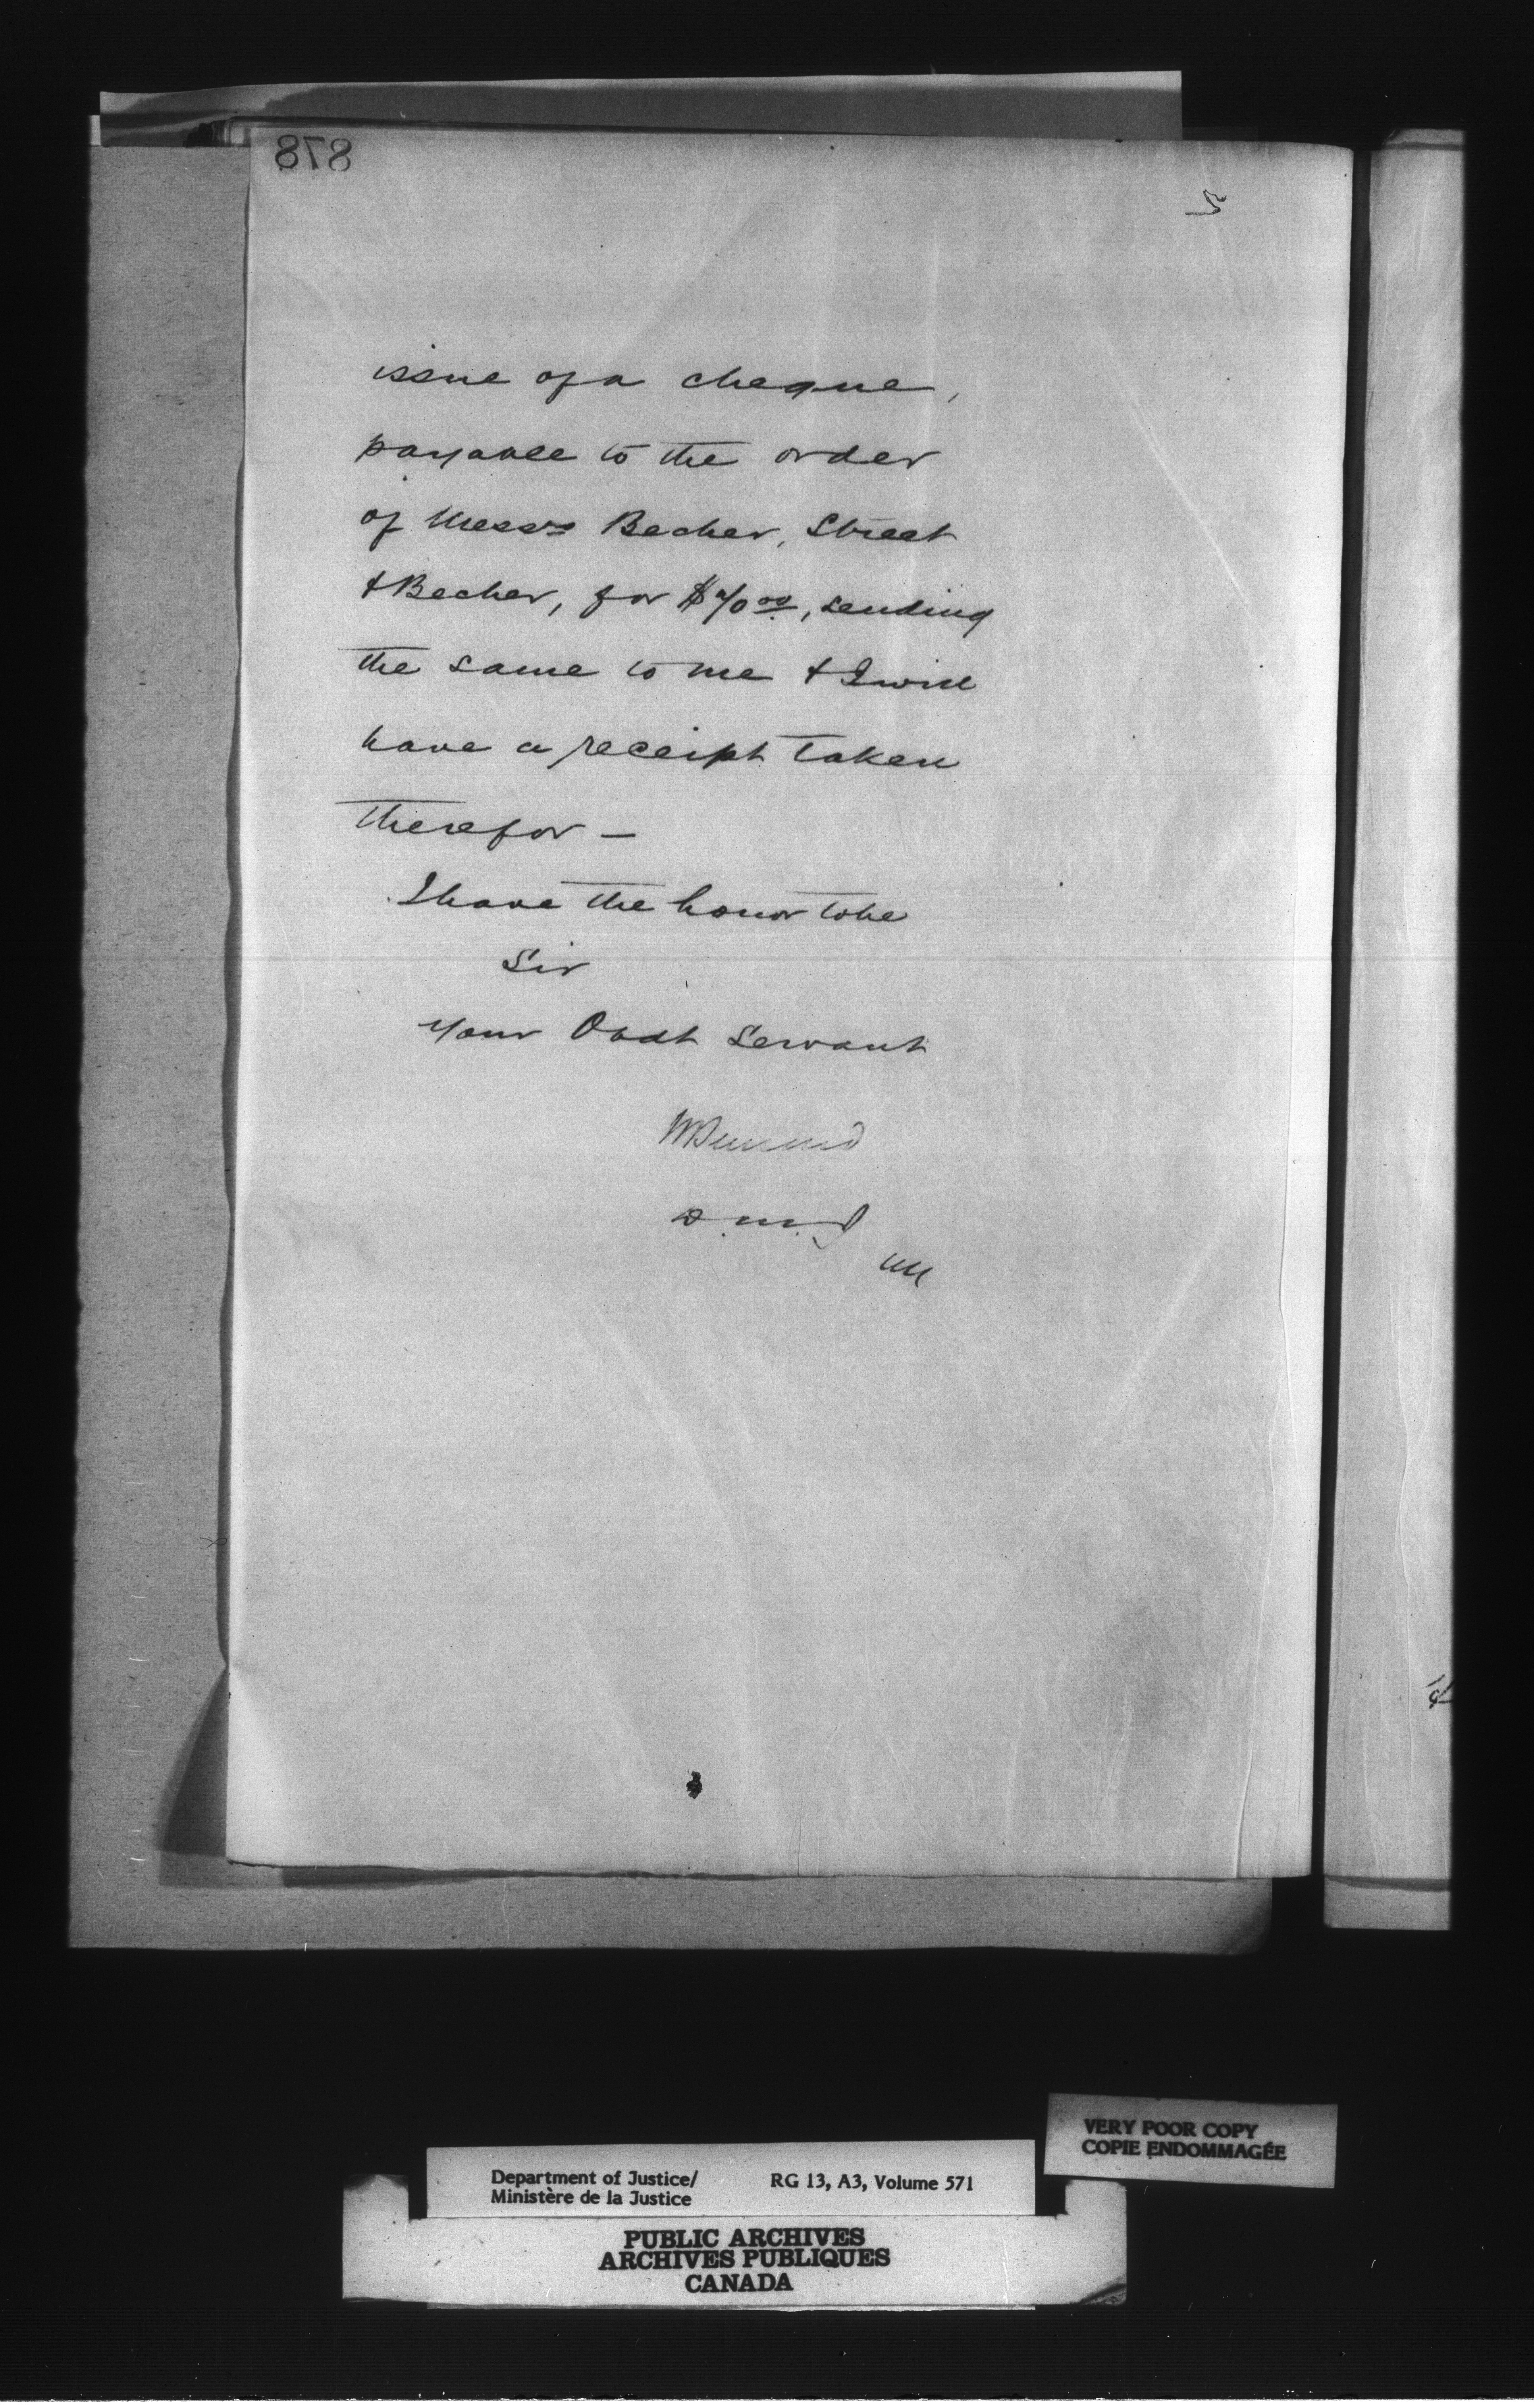 878
issue of a cheque,
payable to the order
of Messrs Becher, Street
& Becher, for $40.00, sending
the same to me & I will
have a receipt taken
therefor —
I have the honor to be
Sir
Your Obdt Servant
D.M.J
VERY POOR COPY
COPIE ENDOMMAGÉE
Department of Justice/ RG 13, A3, Volume 571
Ministère de la Justice
PUBLIC ARCHIVES
ARCHIVES PUBLIQUES
CANADA